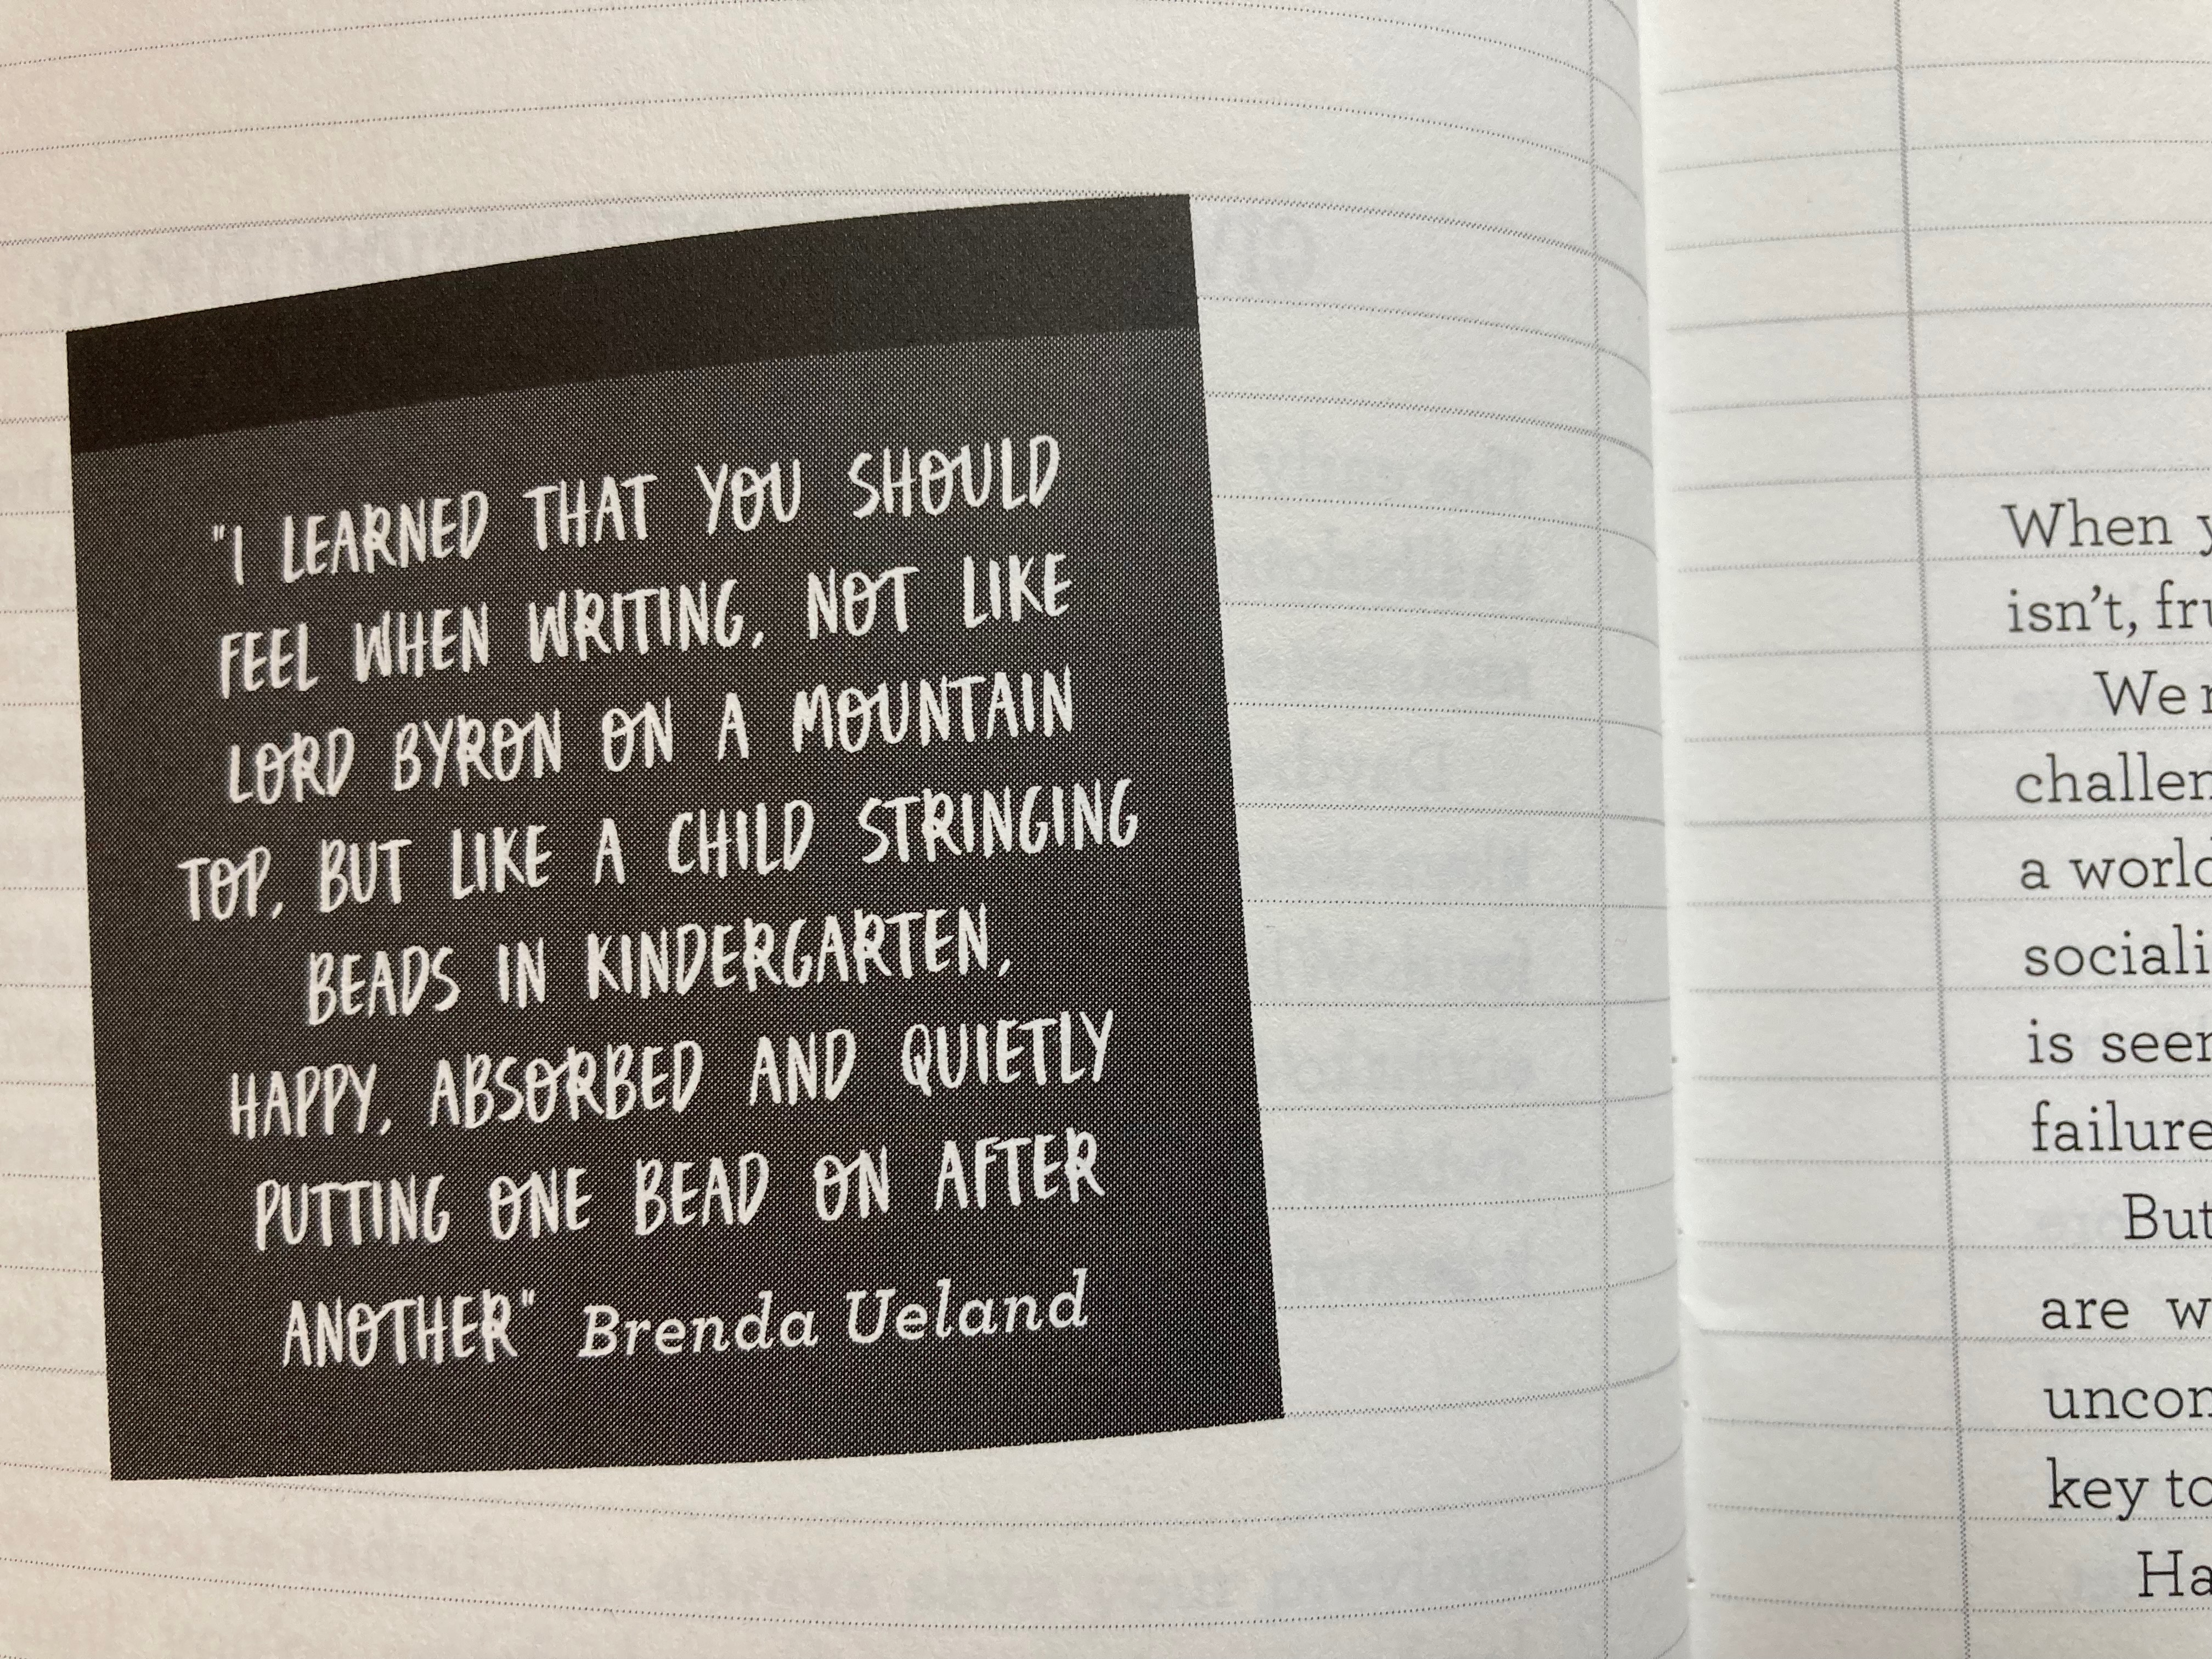 "I LEARNED THAT YOU SHOULD
FEEL WHEN WRITING, NOT LIKE
LORD BYRON ON A MOUNTAIN
TOP, BUT LIKE A CHILD STRINGING
BEADS IN KINDERGARTEN,
HAPPY, ABSORBED AND QUIETLY
PUTTING ONE BEAD ON AFTER
ANOTHER" Brenda Ueland
When
isn't,
We
a
is
failure
But
are
key